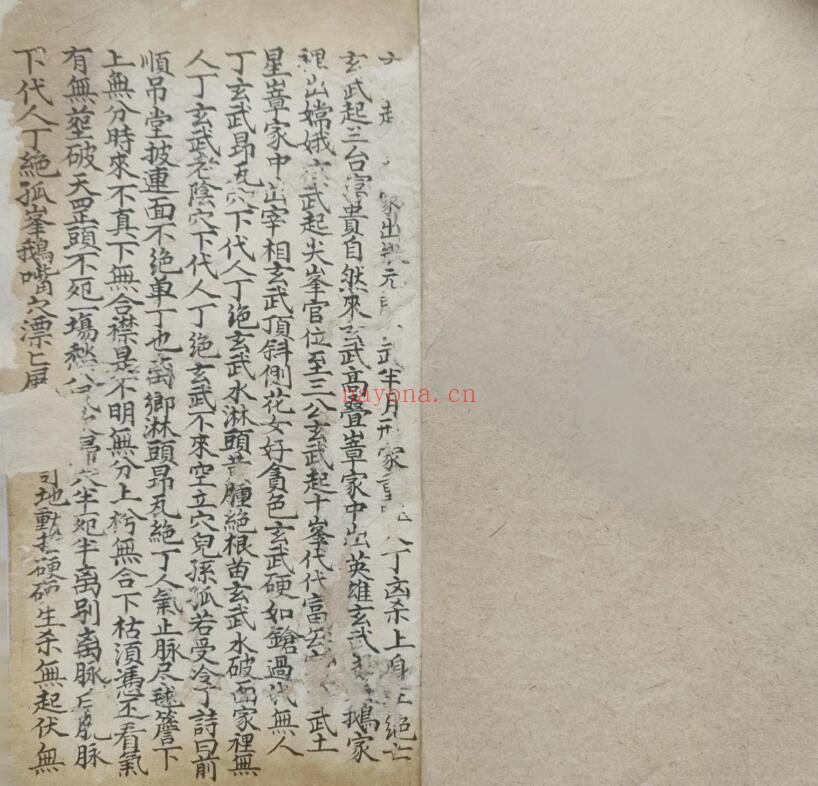 家出 元 武半月形家 人丁凶杀上身 絕亡
玄武起兰台富貴自然來玄武高叠嶂家中出英雄玄武 鵝家
裡出嫦娥玄武起尖峯官位至三公玄武起十峯代代富 武土
星嶂家中出宰相玄武頂斜側花女好貪色玄武硬如鎗過代無人
丁玄武昂瓦穴下代人丁絕玄武水淋頭黄腫絕根苗玄武水破面家裡無
人丁玄武老陰穴下代人丁絕玄武不來空立穴兒孫孤若受冷丁詩曰前
順吊堂披連面不絕单丁也离鄉淋頭昂瓦絕丁人氣止脉尽毬簷下
上無分時來不真下無合襟是不明無分上衿無合下枯須憑丕看氣
有無塟破天罡頭不死一塲愁 穴半死半离别离脉 脉
下代人丁絕孤峯鵝嘴穴漂亡 地動 硬 生杀無起伏無
nayona.cn